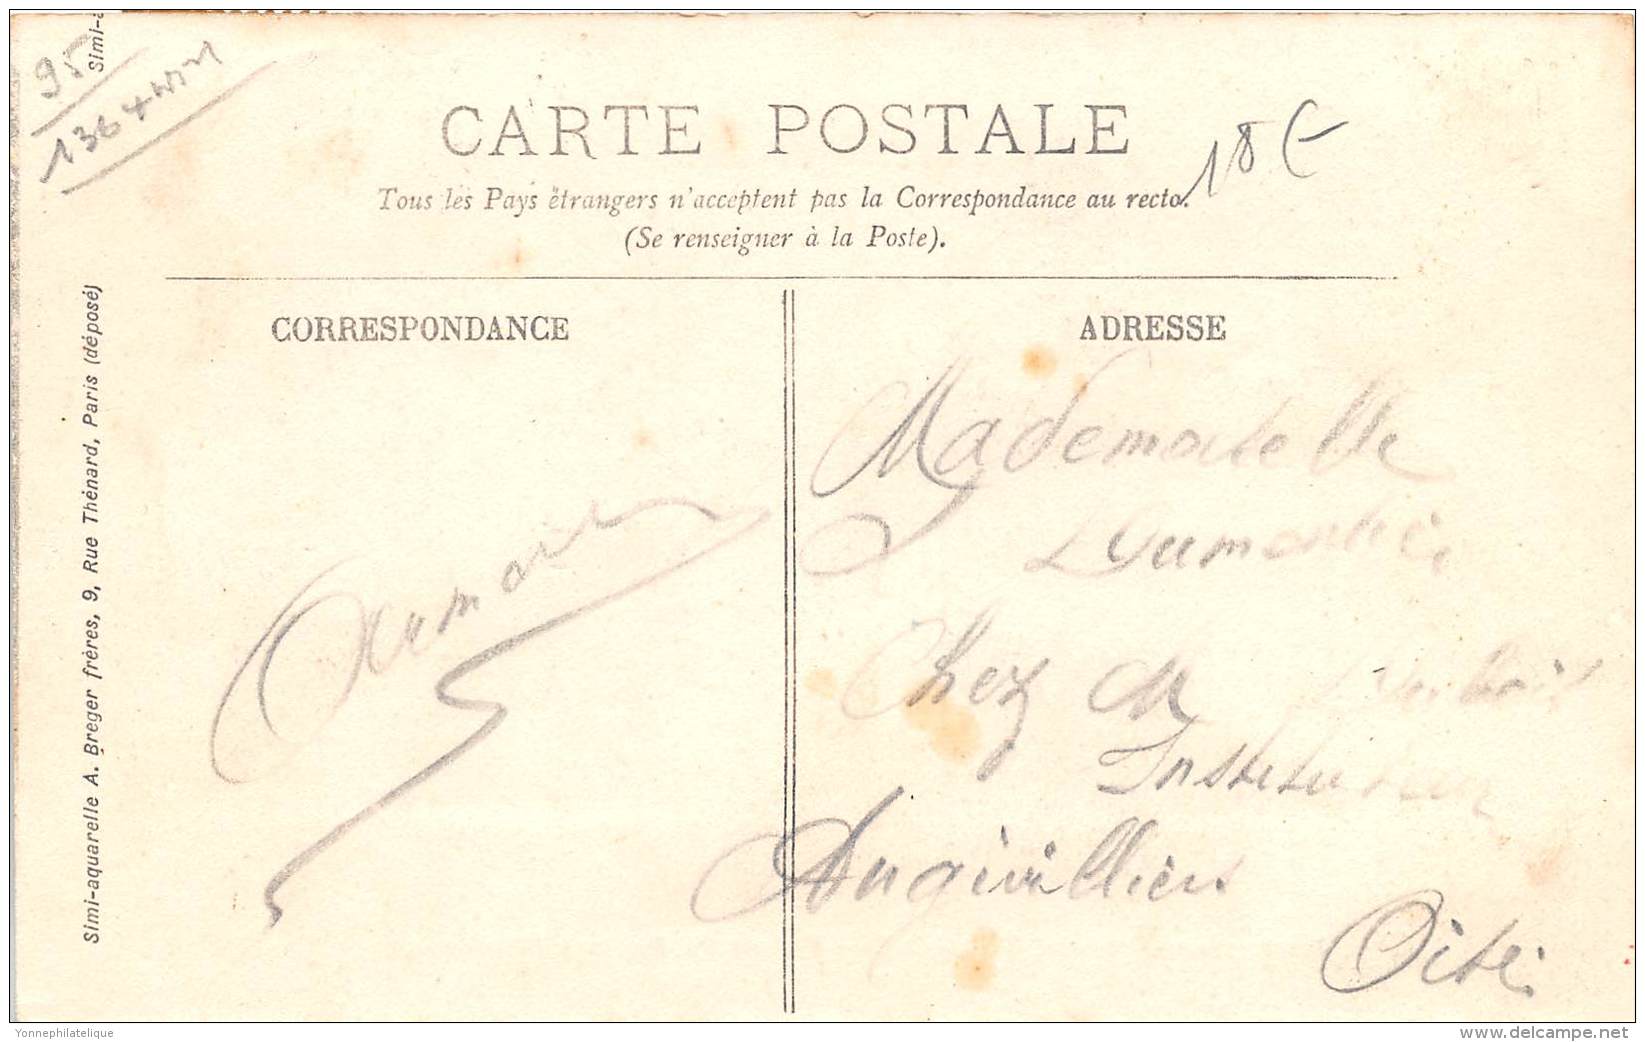 95
Simi-a
136
18 €
CARTE POSTALE
Tous les Pays étrangers n'acceptent pas la Correspondance au recto.
(Se renseigner à la Poste).
CORRESPONDANCE
ADRESSE
Simi-aquarelle A. Breger frères, 9, Rue Thénard, Paris (déposé)
Mademoiselle
Chez M
Instituteur
Angivilliers
Oise
Yonnephilatelique
delcampe.net